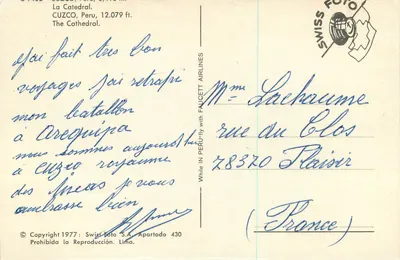 La Catedral.
CUZCO, Peru, 12.079 ft.
The Cathedral.
SWISS FOTO
j'ai fait tres bon
voyages j'ai retrapé
mon batallon
à Arequipa
nous sommes aujourd'hui
à cuzco royaume
des Incas je vous
embrasse bien
While IN PERU fly with FAUCETT AIRLINES
Mme Lachaume
rue du Clos
78370 Plaisir
(France)
© Copyright 1977: Swiss Foto S.A. Apartado 430
Prohibida la Reproducción. Lima.